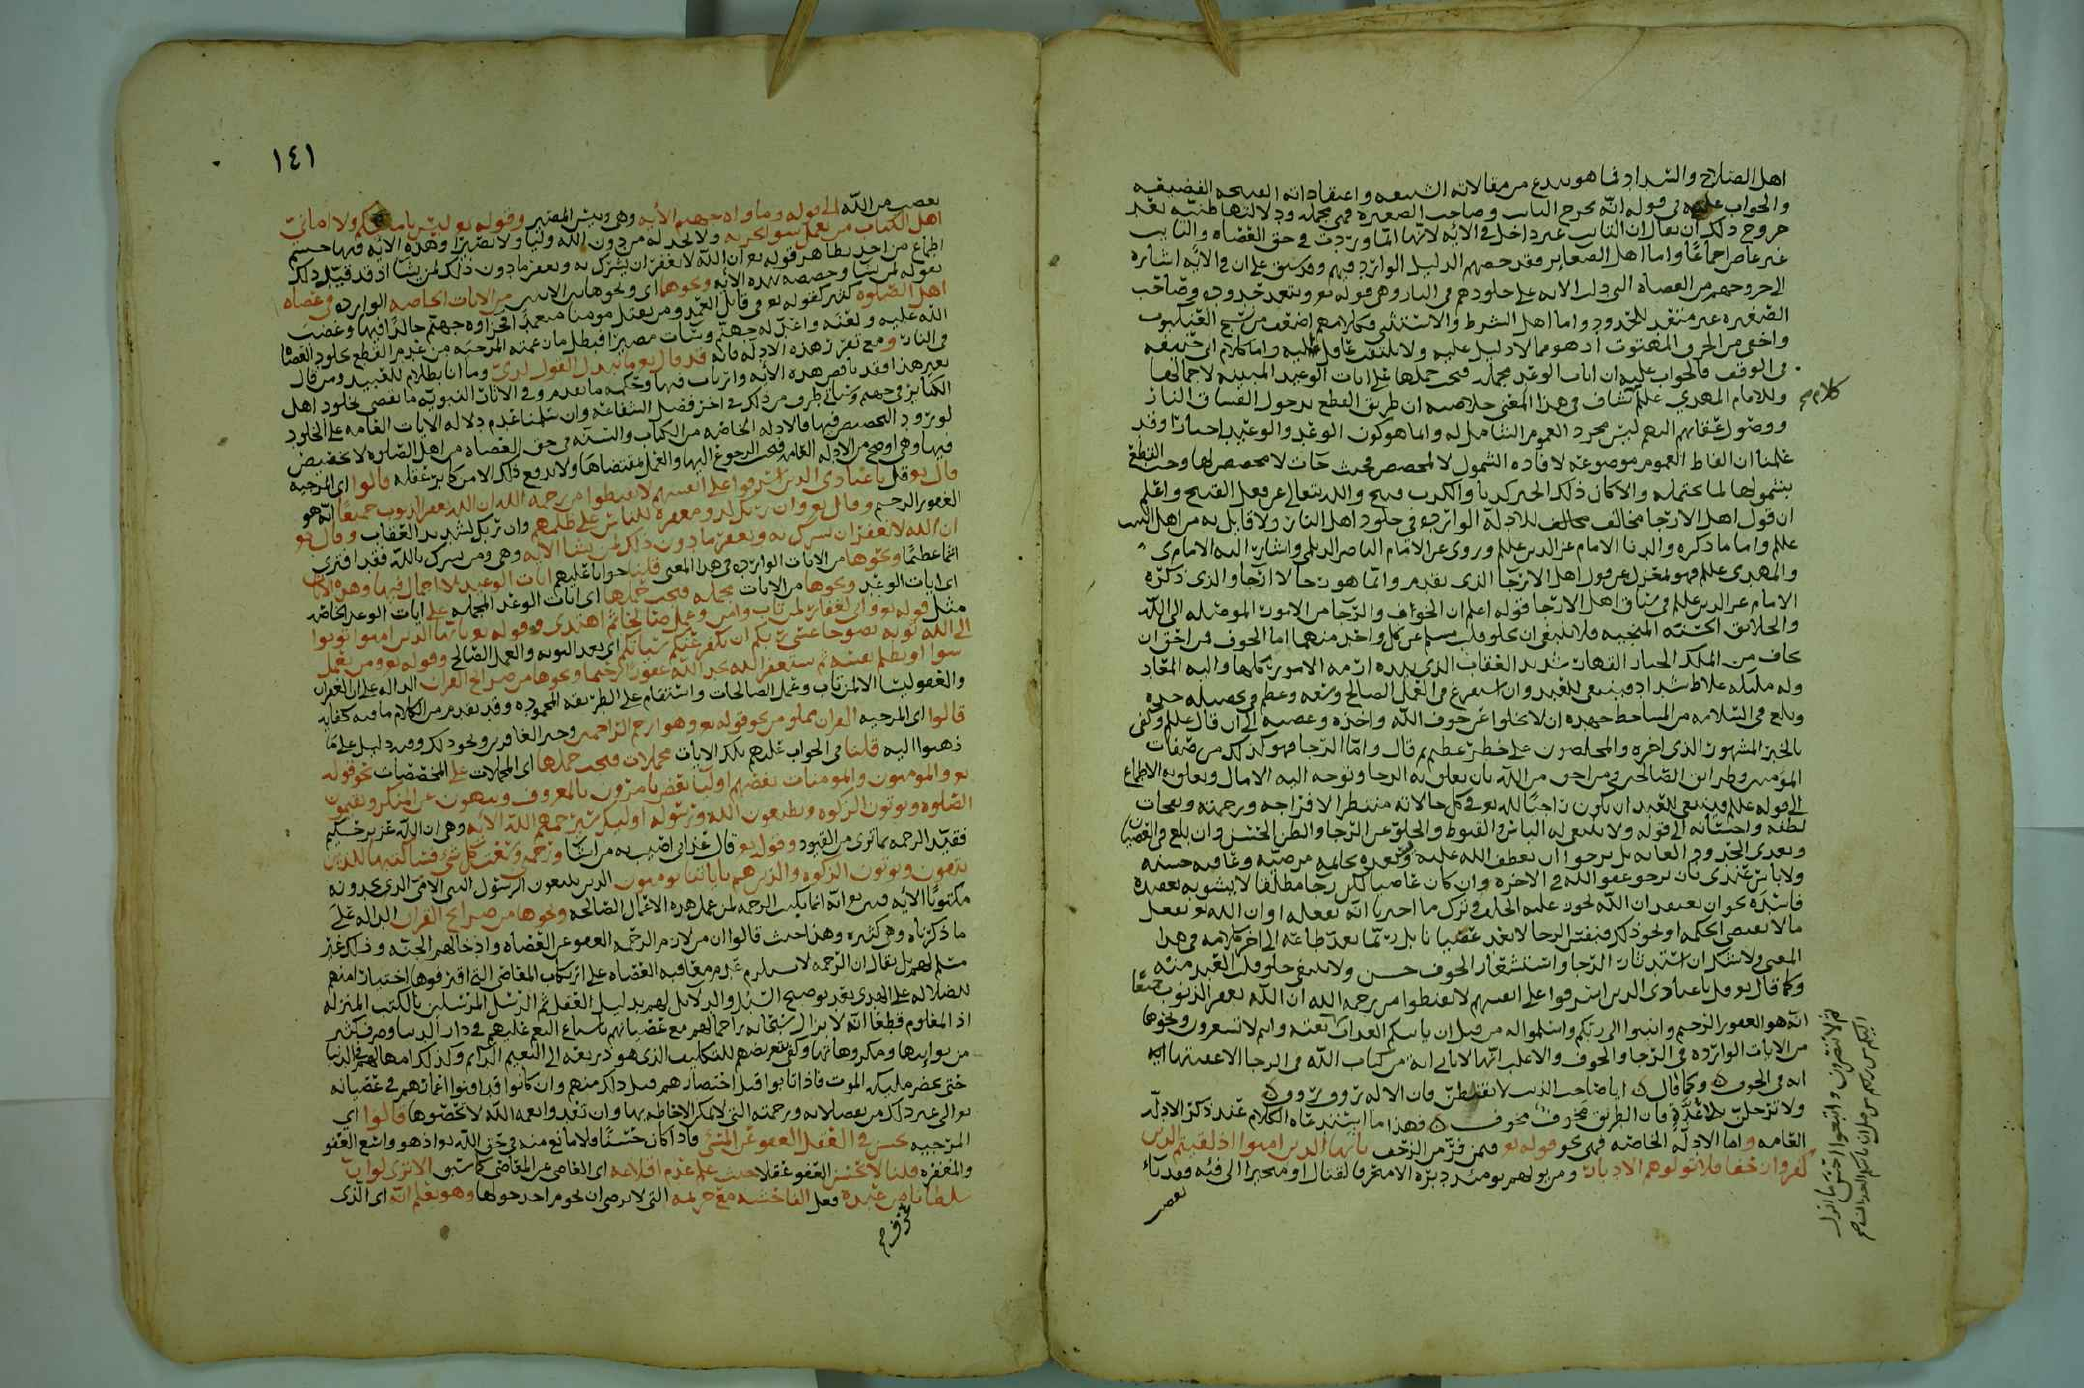 اهل الصلاح والسداد فما هو ببدع من مقالاته الشنيعه واعتقاداته القبيحه الفضيعه
والجواب عليه في قوله انه يخرج التايب وصاحب الصغيره فهي مجمله ودلالتها ظنيه بعد
خروج ذلك ان يقال ان التايب غير داخل في الايه لانها انما وردت في حق العصاه والتايب
غير عاص اجماعا واما اهل الصغاير فقد خصهم الدليل الوارد فيهم وقد سبق على ان في الايه اشاره
الى خروجهم من العصاه التي دلت الايه على خلودهم في النار وهي قوله تع ويتعد حدوده وصاحب
الصغيره غير متعد للحدود واما اهل الشرط والاستثنى فكلامهم اضعف من نسج العنكبوت
واخفى من الحرف المهتوت اذ هو مما لا دليل عليه ولا يلتفت عاقل اليه واما كلام ابي حنيفه
في الوقف فالجواب عليه ان ايات الوعد مجمله فيجب حملها على ايات الوعيد المبينه لاجمالها
وللامام المهدي علم كشاف في هذا المعنى خلاصته ان طريق القطع بدخول الفساق النار
ووصول عقابهم اليهم ليس مجرد العموم الشامل له وانما هو كون الوعد والوعيد اخبارا وقد
علمنا ان الفاظ العموم موضوعه لافاده الشمول لا لمخصص فحيث جات لا مخصص لها وجب القطع
بشمولها لما تحتمله والا كان ذلك الخبر كذبا والكذب قبيح والله يتعالى عن فعل القبيح واعلم
ان قول اهل الارجا مخالف مخالف للادله الوارده في خلود اهل النار ولا قايل به من اهل البيت
علم واما ما ذكره والدنا الامام عز الدين علم وروي عن الامام الناصر الديلمي واشار اليه الامام ي
والمهدي علم فهو لمعزل عن قول اهل الارجا الذي تقدم وانما هو رجا لا ارجا والذي ذكره
الامام عز الدين علم في سياق اهل الارجا قوله اعلم ان الخوف والرجا من الامور الموصله الى الله
والخلايق الحسنه المنجيه فلا ينبغي ان يخلو قلب مسلم عن كل واحد منهما اما الخوف فمن احق ان
يخاف من الملك الجبار القهار شديد العقاب الذي بيده ازمه الامور كلها واليه المعاد
وله مليكه غلاظ شداد فينبغي للعبد وان استفرغ في العمل الصالح وسعه وعظم في تحصيله جده
وبلغ في السلامه من المساخط جهده ان لا يخلوا عن خوف الله واخذه وعصيه الى ان قال علم وكفى
بالخبر المشهور الذي اخره والمخلصون على خطر عظيم قال واما الرجا فهو كذلك من صفات
المومنين وطراين الصالحين ومن احق من الله بان يعلق به الرجا وتوجه اليه الامال وتعلق به الاطماع
الى قوله علم فينبغي للعبد ان يكون راجيا لله تع في كل حالاته منتظرا لافراجه ورحمته ونفحات
لطفه واحسانه الى قوله ولا ينبغي له الياس والقنوط والخلو عن الرجا والظن الحسن وان بلغ في العصيان
وتعدى الحدود الغايه بل يرجوا ان يعطف الله عليه وتصدره بخاتمه مرضيه وعاقبه حسنه
ولا باس عندي بان يرجو عفو الله في الاخره وان كان عاصيا لكن رجا مطلقا لا يشوبه بعقيده
فاسده نحو ان يعتقد ان الله يجوز عليه الخلف وترك ما اخبرنا انه يفعله او ان الله تع يفعل
ما لا تقتضي الحكمه او نحو ذلك فنفس الرجا لا يعد عصيانا بل ربما يعد طاعه الى اخر كلامه في هذا
المعنى ولا شك ان استدثار الرجا واستشعار الخوف حسن ولا ينبغي خلو قلب العبد منه
وكما قال تع قل يا عبادي الذين اسرفوا على انفسهم لا تقنطوا من رحمه الله ان الله يغفر الذنوب جميعا
انه هو الغفور الرحيم وانيبوا الى ربكم واسلموا له من قبل ان ياتيكم العذاب بغته وانتم لا تشعرون ونحوها
من الايات الوارده في الرجا والخوف والاغلب انها لا تاتي ايه من كتاب الله في الرجا الا عقبتها ايه
ايه في الخوف وكما قال ايا صاحب الذنب لا تقنطن فان الاله رؤوف رؤوف
ولا ترحلن بلا عدة فان الطريق مخوف مخوف فهذا ما استدعاه الكلام عند ذكر الادله
العامه واما الادله الخاصه فهي نحو قوله تع فيمن فر من الزحف يا ايها الذين امنوا اذا لقيتم الذين
كفروا زحفا فلا تولوهم الادبار ومن يولهم يومئذ دبره الا متحرفا لقتال او متحيزا الى فئه فقد باء
بغضب
كلام صح
ثم لا تنصرون واتبعوا احسن ما انزل
اليكم من ربكم من قبل ان ياتيكم العذاب صح
١٤١
بغضب من الله الى قوله وماواه جهنم الايه وهي وبيس المصير وقوله تع ليس بامانيكم ولا اماني
اهل الكتاب من يعمل سوا يجز به ولا يجد له من دون الله وليا ولا نصيرا وهذه الايه فيها حسم
اطماع من اخذ بظاهر قوله تع ان الله لا يغفر ان يشرك به ويغفر ما دون ذلك لمن يشا اذ قد قيد ذلك
بقوله لمن يشا وخصصه بهذه الايه ونحوها اي ونحو هاتين الايتين من الايات الخاصه الوارده في عصاه
اهل الصلوه كثير كقوله تع في قاتل العمد ومن يقتل مومنا متعمدا فجزاوه جهنم خالدا فيها وغضب
الله عليه ولعنه واعد له جهنم وسات مصيرا فبطل ما زعمته المرجيه من عدم القطع بخلود العصاه
في النار ومع تقرر هذه الادله فانه قد قال تع ما يبدل القول لدي وما انا بظلام للعبيد ومن قال
بغير هذا فقد ناقض هذه الايه وارتاب فيها وحكمه ما تقدم وفي الاثار النبويه ما يقضي بخلود اهل
الكباير في جهنم وسياتي طرف من ذلك في اخر فصل الشفاعه وان سلمنا عدم دلاله الايات العامه على الخلود
لورود التخصيص فيها فالادله الخاصه من الكتاب والسنه في حق العصاه من اهل الصلوه لا تخصيص
فيها وهي اوضح من الادله العامه فيجب الرجوع اليها والعمل بمقتضاها ولا يدفع ذلك الا من كابر عقله قالوا اي المرجيه
قال تع قل يا عبادي الذين اسرفوا على انفسهم لا تقنطوا من رحمه الله ان الله يغفر الذنوب جميعا انه هو
الغفور الرحيم وقال تع وان ربك لذو مغفره للناس على ظلمهم وان ربك لشديد العقاب وقال تع
ان الله لا يغفر ان يشرك به ويغفر ما دون ذلك لمن يشا الايه وهي ومن يشرك بالله فقد افترى
اثما عظيما ونحوها من الايات الوارده في هذا المعنى قلنا جوابا عليهم ايات الوعيد لا اجمال فيها وهذه الايات
اي ايات الوعد ونحوها من الايات مجمله فيجب حملها اي ايات الوعد المجمله على ايات الوعد الخاصه
مثل قوله تع واني لغفار لمن تاب وامن وعمل صالحا ثم اهتدى وقوله تع يا ايها الذين امنوا توبوا
الى الله توبه نصوحا عسى ربكم ان يكفر عنكم سياتكم اي بعد التوبه والعمل الصالح وقوله تع ومن يعمل
سوا او يظلم نفسه ثم يستغفر الله يجد الله غفورا رحيما ونحوها من صرايح القران الداله على ان الغفران
والعفو ليسا الا لمن تاب وعمل الصالحات واستقام على الطريقه المحموده وقد تقدم من الكلام ما فيه كفايه
قالوا اي المرجيه القران مملو من نحو قوله تع وهو ارحم الراحمين وخير الغافرين ونحو ذلك وفيه دليل على ما
ذهبوا اليه قلنا في الجواب عليهم تلك الايات مجملات فيجب حملها اي المجملات على المخصصات نحو قوله
تع والمومنون والمومنات بعضهم اوليا بعض يامرون بالمعروف وينهون عن المنكر ويقيمون
الصلوه ويوتون الزكوه ويطيعون الله ورسوله اوليك سيرحمهم الله الايه وهي ان الله عزيز حكيم
فقيد الرحمه بما ترى من القيود وقوله تع قال عذابي اصيب به من اشا ورحمتي وسعت كل شي فساكتبها للذين
يتقون ويوتون الزكوه والذين هم باياتنا يومنون الذين يتبعون الرسول النبي الامي الذي يجدونه
مكتوبا الايه فبين تع انه انما يكتب الرحمه لمن عمل هذه الاعمال الصالحه ونحوها من صرايح القران الداله على
ما ذكرناه وهي كثيره وهذا حيث قالوا ان من لازم الرحمه العفو عن العصاه وادخالهم الجنه وذلك غير
مسلم لهم بل يقال ان الرحمه لا يستلزم عدم معاقبه العصاه على ارتكاب المعاصي التي اقترفوها اختيارا منهم
للضلاله على الهدى بعد توضيح السبل والدلايل لهم بدليل العقل ثم الرسل المرسلين بالكتب المنزله
اذ المعلوم قطعا انه لا يزال سبحانه راحما لهم مع عصيانهم باسباغ النعم عليهم في دار الدنيا وصرف كثير
من نوايبها ومكروهاتها وكفى بتعريضهم للتكاليف الذي هو ذريعه الى النعيم الدايم وكذلك امهالهم في الدنيا
حتى يحضر مليكه الموت فاذا تابوا قبل احتضارهم قبل ذلك منهم وان كانوا قد افنوا اعمارهم في عصيانه
تعالى غير ذلك من تفضلاته ورحمته التي لا يمكن الاحاطه بها وان تعدوا نعمه الله لا تحصوها قالوا اي
المرجيه يحسن في العقل العفو عن المسي واذا كان حسنا فلا مانع منه في حق الله تع اذ هو واسع العفو
والمغفره قلنا لا يحسن العفو عقلا حيث علم عدم اقلاعه اي العاصي عن المعاصي كما سبق الا ترى لو ان
سلطانا من عبده فعل الفاحشه مع حريمه التي لا يرضى ان يحوم احد حولها وهو يعلم انه اي الذي
عرف صح